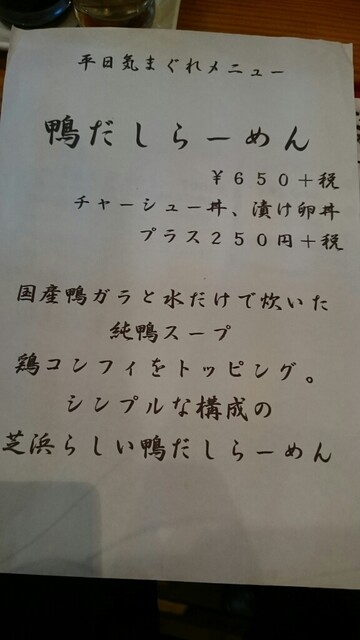 平日気まぐれメニュー
鴨だしらーめん
￥６５０＋税
チャーシュー丼、漬け卵丼
プラス２５０円＋税
国産鴨ガラと水だけで炊いた
純鴨スープ
鶏コンフィをトッピング。
シンプルな構成の
芝浜らしい鴨だしらーめん